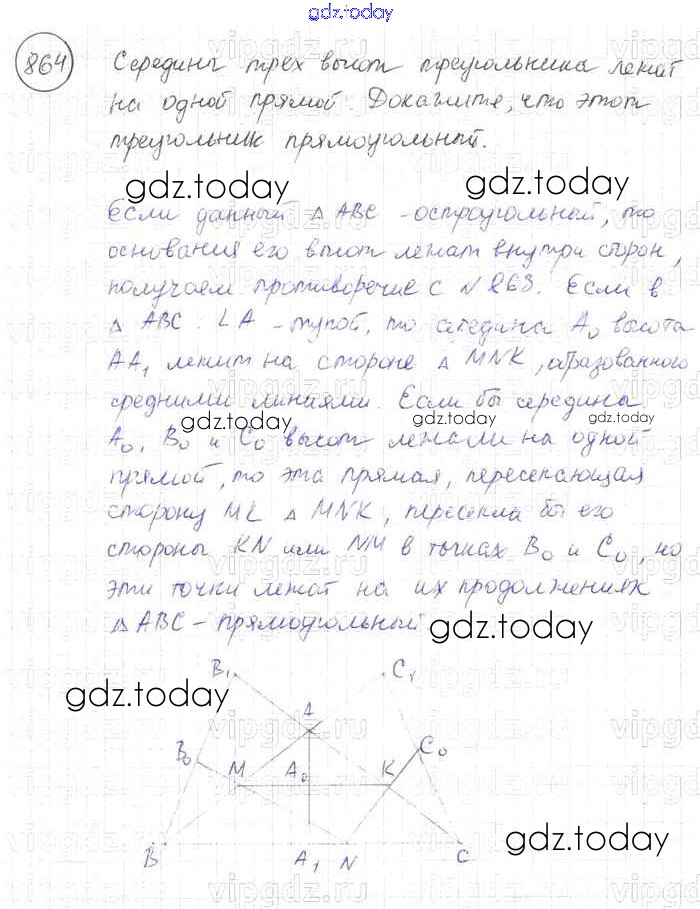 gdz.today
864 Середины трех высот треугольника лежат
на одной прямой. Докажите, что этот
треугольник прямоугольный.
gdz.today
gdz.today
Если данный △ ABC - остроугольный, то
основания его высот лежат внутри сторон,
получаем противоречие с №863. Если в
△ ABC: ∠A - тупой, то середина A₀ высоты
AA₁ лежит на стороне △ MNK, образованного
средними линиями. Если бы середины
gdz.today
gdz.today
gdz.today
A₀, B₀ и C₀ высот лежали на одной
прямой, то эта прямая, пересекающая
сторону MK △ MNK, пересекла бы его
стороны KN или NM в точках B₀ и C₀, но
эти точки лежат на их продолжениях
△ ABC - прямоугольный
gdz.today
gdz.today
B₁ C₁
A
B₀ C₀
M A₀ K
gdz.today
B A₁ N C